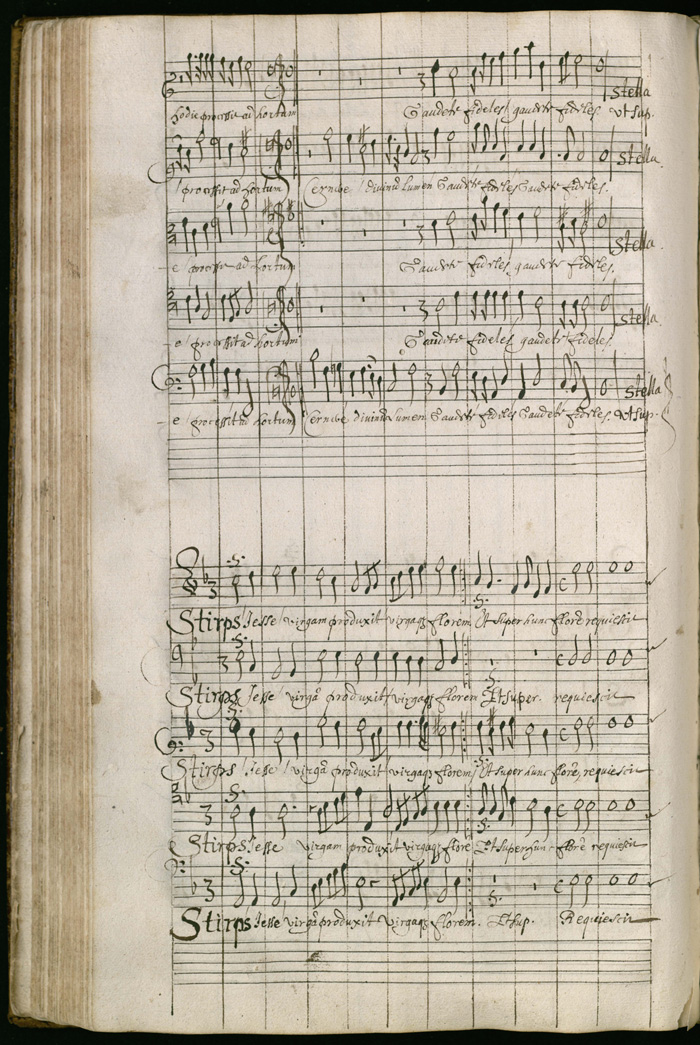 hodie processit ad hortum Gaudete fideles, gaudete fideles. Stella ut sup.
processit ad hortum Cernite divinū lumen Gaudete fideles Gaudete fideles. Stella.
e processit ad hortum Gaudete fideles, gaudete fideles. Stella.
e processit ad hortum Gaudete fideles, gaudete fideles. Stella.
e processit ad hortum Cernite divinū lumen Gaudete fideles Gaudete fideles. Stella ut sup.
Stirps Jesse virgam produxit virgaqȝ florem Et super hunc florē requiescit
Stirps Jesse virgā produxit virgaqȝ florem Et super. requiescit
Stirps Jesse virgā produxit virgaqȝ florem Et super hunc florē, requiescit
Stirps Jesse virgam produxit virgaqȝ florē Et super hunc florē requiescit
Stirps Jesse virgā produxit virgaqȝ florem. Et sup. Requiescit